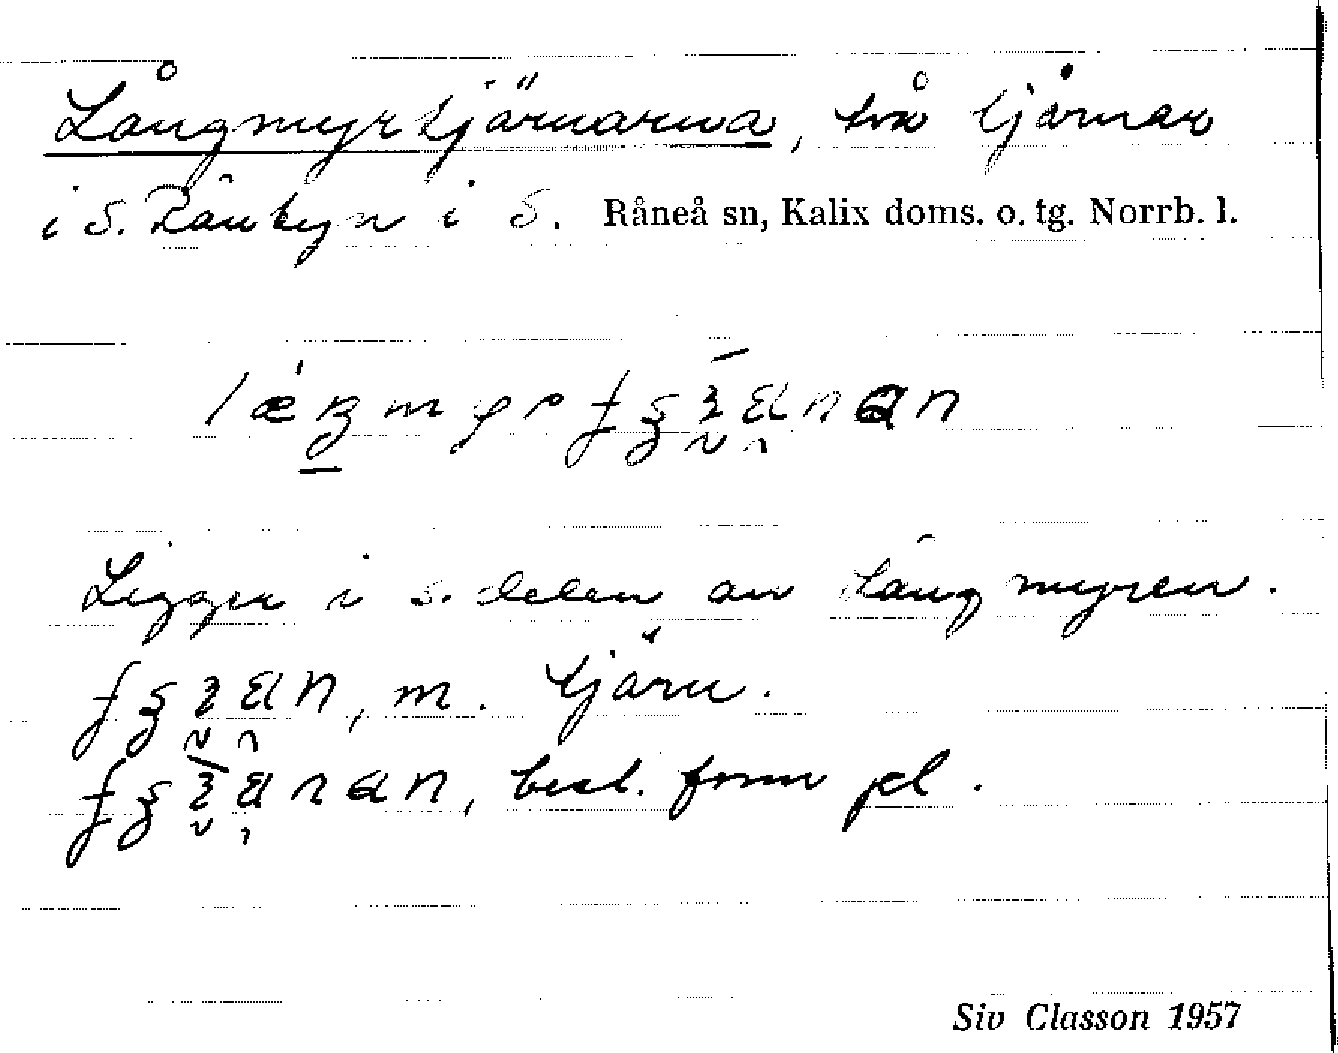 Långmyrtjärnarna, två tjärnar
i S. Rånbyn i S. Råneå sn, Kalix doms. o. tg. Norrb. l.
Ligger i s. delen av Långmyren.
, m. tjärn.
, best. form pl.
Siv Classon 1957